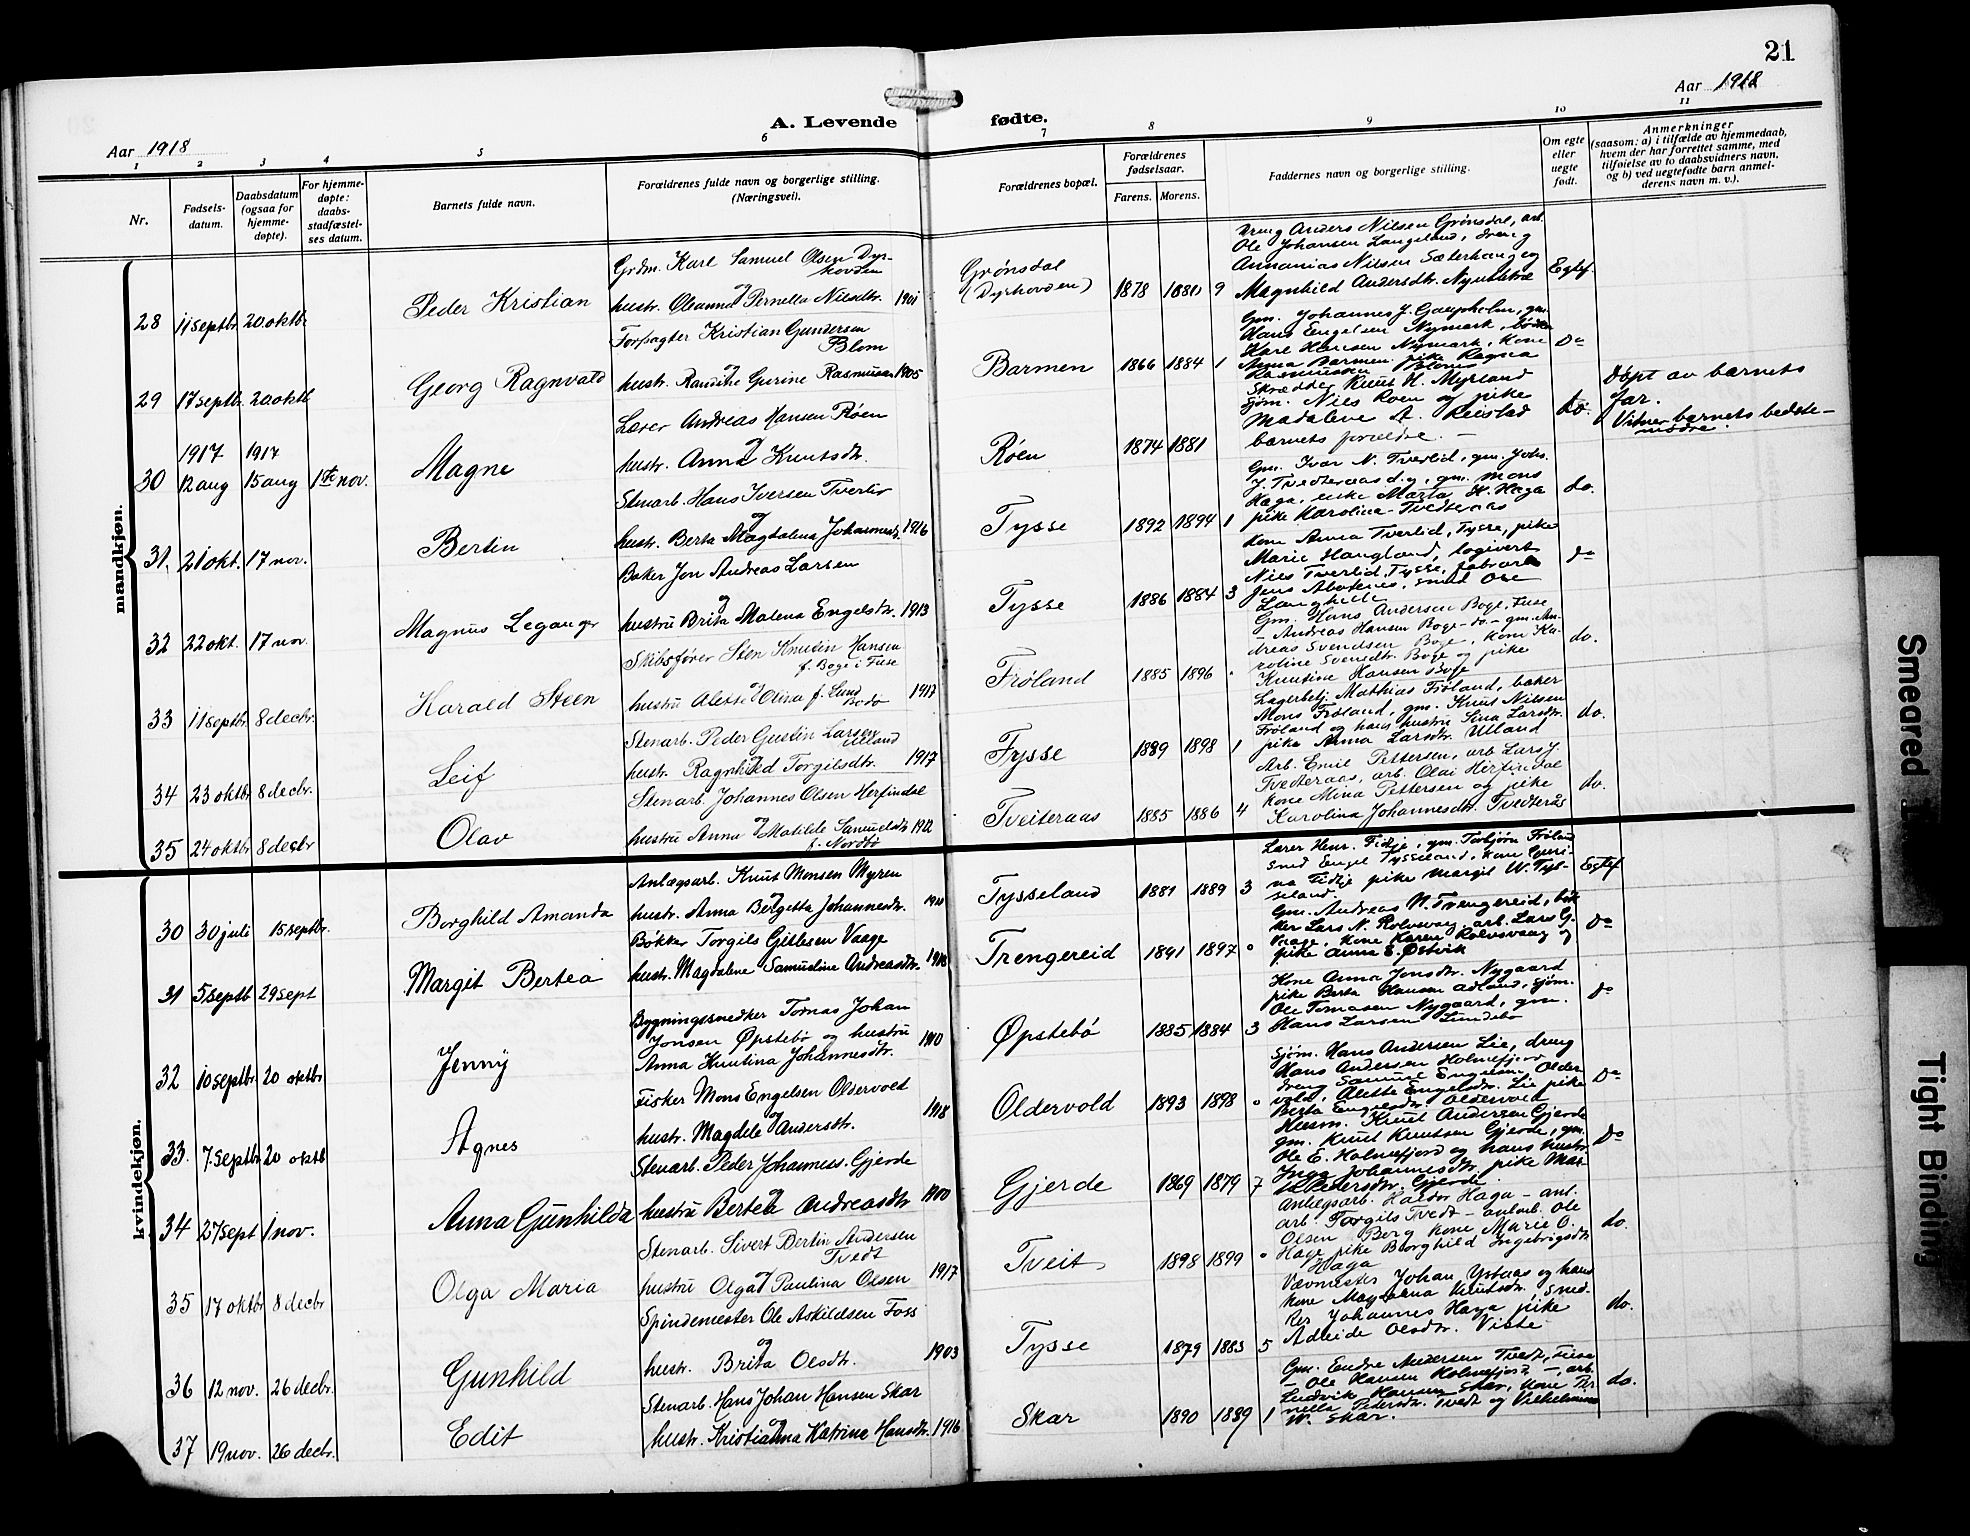 21
Aar 1918
Aar 1918
A. Levende fødte.
1 2 3 4 5 6 7 8 9 10 11
Nr.
Fødsels-
datum.
Daabsdatum
(ogsaa for
hjemme-
døpte).
For hjemme-
døpte:
daabs-
stadfæstel-
ses datum.
Barnets fulde navn.
Forældrenes fulde navn og borgerlige stilling.
(Næringsvei).
Forældrenes bopæl.
Forældrenes
fødselsaar.
Farens. Morens.
Faddernes navn og borgerlige stilling.
Om egte
eller
uegte
født.
Anmerkninger
(saasom: a) i tilfælde av hjemmedaab,
hvem der har forrettet samme, med
tilføielse av to daabsvidners navn,
og b) ved uegtefødte barn anmel-
derens navn m. v.).
mandkjøn.
28 11 septbr. 20. oktbr. Peder Kristian
Grdm. Karl Samuel Olsen Dyr-
hovden
og
hustr. Oleanna Pernella Nilsdtr. 1901
Grønsdal
(Dyrhovden)
1878 1881 9
Dreng Anders Nilsen Grønsdal, arb.
Ole Johansen Langeland, dreng
Annanias Nilsen Sæterhaug og
Magnhild Andersdtr.
Egtef.
29 17 septbr. 20 oktb Georg Ragnvald
Forpagter Kristian Gundersen
Blom
og
hustr. Gurine Rasmussen 1905
Barmen 1866 1884 1
Gm. Johannes J. Gaupholm, gm.
Hans Engelsen Nymark, bødker
Karl Hansen Nymark, Kone
Anna Barmen, pike Ragna
Rasmussen
Do
30 1917 12 aug 1917 15 aug 1ste nov. Magne
Lærer Andreas Hansen Røen
og
hustr. Anna Knutsdtr.
Røen 1874 1881
Skrædder Knut H. Myrland
sjøm. Nils Roen og pike
Madalene A. Reistad
barnets forældre. –
do.
Døpt av barnets
far.
Vitner barnets bedste-
mødre.
31. 21 okt. 17 nov. Bertin
Stenarb. Hans Iversen Tverlid
og
hustr. Berta Magdalena Johannesdtr. 1916
Tysse 1892 1894 1
Gm. Ivar N. Tverlid, gm. Johs.
J. Tvedteraas d.y., gm. Mons
Haga, enke Marta K. Haga
pike Karolina Tvedteraas
do.
32 22 okt. 17 nov. Magnus Leganger
Baker Jon Andreas Larsen
og
hustru Brita Malena Engelsdtr. 1913
Tysse 1886 1884 3
Kone Anna Tverlid, Tysse, pike
Marie Haugland, logivert
Nils Tverlid, Tysse,
Jens smed Ole
Langhelle
do
33 11 septbr. 8 decbr. Harald Steen
Skibsfører Sten Knutsen Hansen
f. Boge i Fuse
og
hustru Alette Olina f. Lund
Bodø 1917
Frøland 1885 1896 "
Gm. Hans Andersen Boge, Fuse
– Andreas Hansen Boge – do – gm. An-
dreas Svendsen Boge, Kone Ka-
roline Svendsdtr. Boge og pike
Knutine Hansen Boge
do.
34 23 oktbr 8 decbr. Leif
Stenarb. Peder Gustin Larsen
Ulland
og
hustr. Ragnhild Torgilsdtr. 1917
Tysse 1889 1898 1
Lagerbetj. Mathias Frøland, baker
Mons Frøland, gm. Knut Nilsen
Frøland og hans hustru Sina Larsdtr.
pike Anna Larsdtr. Ulland
do.
35 24 oktbr 8 decbr Olav
Stenarb. Johannes Olsen Herfindal
og
hustru Anna Matilde Samuelsdtr 1912
f. Nordbø
Tveiteraas 1885 1886 4
Arb. Emil Pettersen, arb Lars J.
Tvedteraas, arb. Olai Herfindal
Kone Mina Pettersen og pike
Karolina Johannesdtr. Tvedterås
do.
kvindekjøn.
30 30 juli 15 septbr. Borghild Amanda
Anlægsarb. Knut Monsen Myren
og
hustr. Anna Bergetta Johannesdtr.
Tysseland 1881 1889 3
Lærer Henr. Fidje, gm. Torbjørn Frøland
smed Engel Tysseland, Kone Guri-
na Fidje pike Margit W. Tys-
seland.
Egtef
31 5 septb 29 sept Margit Bertea
Bøkker Torgils Gitlesen Vaage
hustr. Magdalene Samueline Andreasdtr. 1918
Trengereid 1891 1897 "
Gm. Andreas N. Trengereid, bøk
ker Lars N. Rolvsvag, arb. Lars G.
Vaage, Kone Karen Rolvsvaag og
pike Anna E. Østvik
do
32 10 septbr. 20 oktbr Jenny
Bygningssnedker Tomas Johan
Jonsen Øpstebø og hustru
Anna Knutina Johannesdtr. 1910
Øpstebø 1885 1884 3
Kone Anna Jonsdtr. Nygaard
pike Berta Hansen Adland, sjøm.
Ole Tomasen Nygaard, gm.
Hans Larsen Lundebø
do
33. 7. septbr 20 oktb Agnes
Fisker Mons Engelsen Oldervold
og
hustr. Magdele Andersdtr. 1918
Oldervold 1893 1898 "
Sjøm. Hans Andersen Lie, dreng
Hans Andersen Holmefjord
dreng Samuel Engelsen Older
vold, Alette Engelsdtr. Lie pike
Berta Engelsdtr. Oldervold
Do
34 27 sept 1 nov. Anna Gunhilda
Stenarb. Peder Johanness. Gjerde
og
hustru Bertea Andreasdtr 1900
Gjerde 1869 1879 7
Husm. Knut Andersen Gjerde
gm. Knut Knutsen Gjerde, gm.
Ole E. Holmefjord og hans hustr.
Inga Johannesdtr. pike Mar
Pedersdtr. Gjerde
Do
35 17 oktbr 8 decbr Olga Maria
Stenarb. Sivert Bertin Andersen
Tvedt
og
hustru Olga Paulina Olsen 1917
Tveit 1898 1899 "
Anlægsarb. Haldor Haga – anl.
arb. Torgils Tvedt – anlarb. Ole
Olsen Berg Kone Marie O.
Hage pike Borghild Ingebrigtsdtr
Haga
do.
36 12 nov. 26 decbr. Gunhild
Spindemester Ole Askildsen Foss
og
hustr. Brita Olsdtr. 1903
Tysse 1879 1883 5
Vævmester Johan Ystaas og hans
Kone Magdalena Knutsdtr, sned-
ker Johannes Haga pike
Adleide Olsdtr. Viste
do.
37 19 nov. 26 decbr. Edit
Stenarb. Hans Johan Hansen Skar
og
hustr. Kristianna Katrine Hansdtr. 1916
Skar 1890 1889 1
Gm. Endre Andersen Tvedt, Fuse
– Ole Hansen Holmefjord –, arb.
Ludvik Hansen Skar, Kone Per
nella Pedersdtr. Tvedt og Vilhelmina
W. Skar.
do.
Smeared
Tight Binding